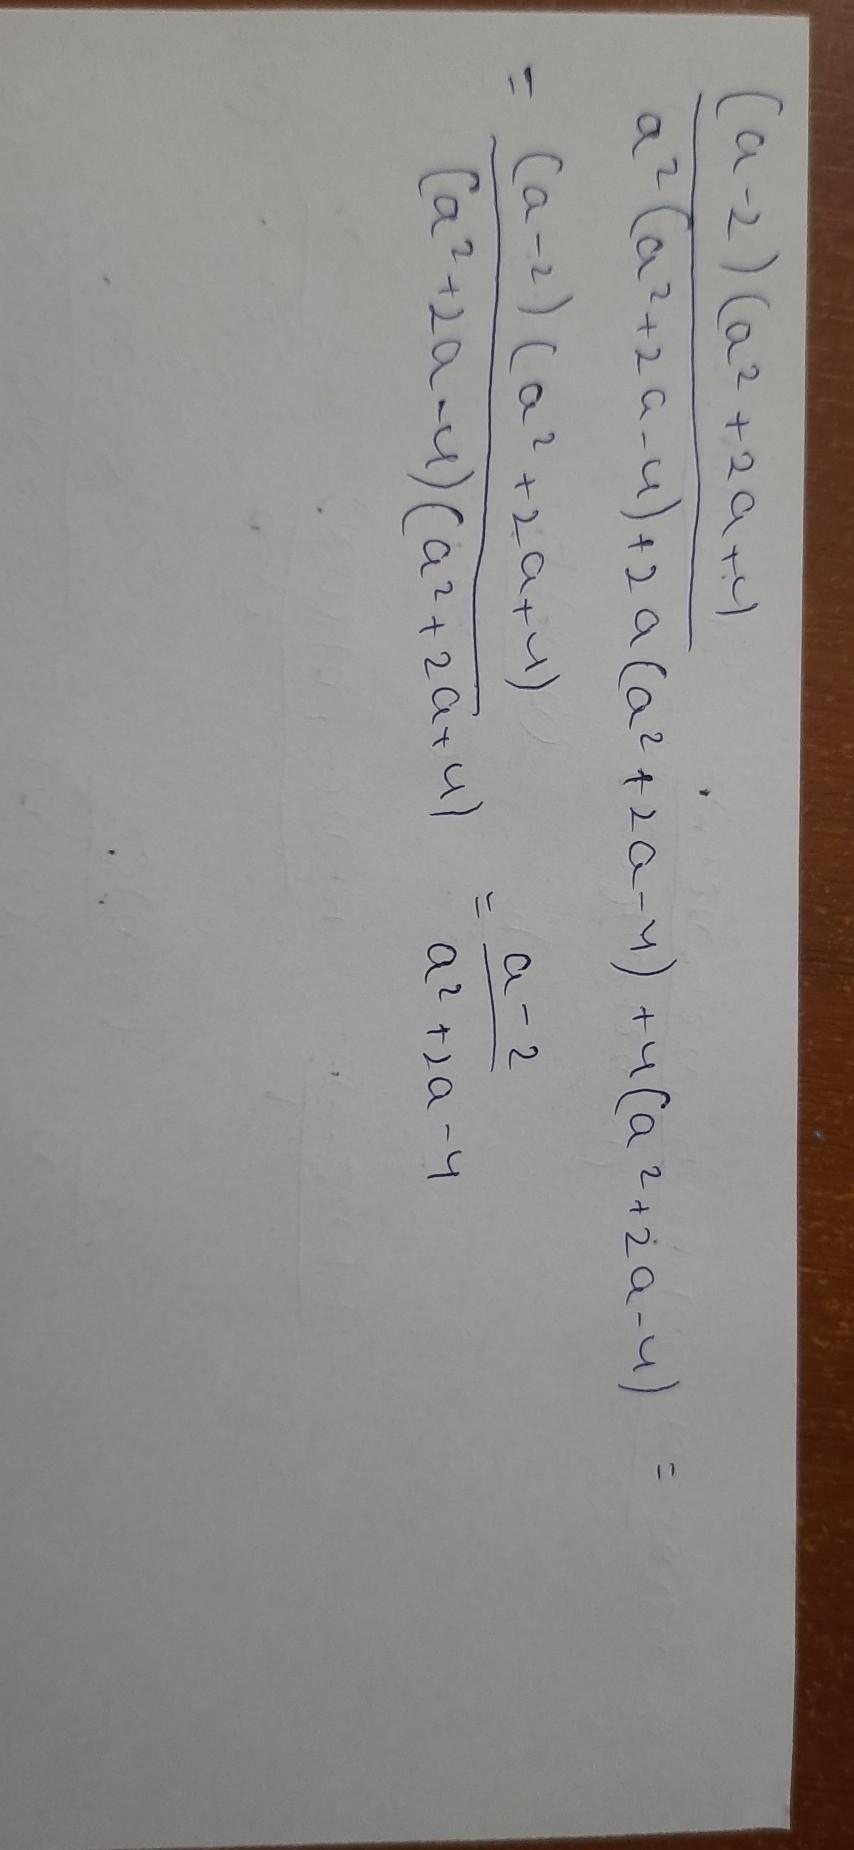 (a-2)(a²+2a+4)
a²(a²+2a-4)+2a(a²+2a-4)+4(a²+2a-4) =
= (a-2)(a²+2a+4)
(a²+2a-4)(a²+2a+4)
= a-2
a²+2a-4